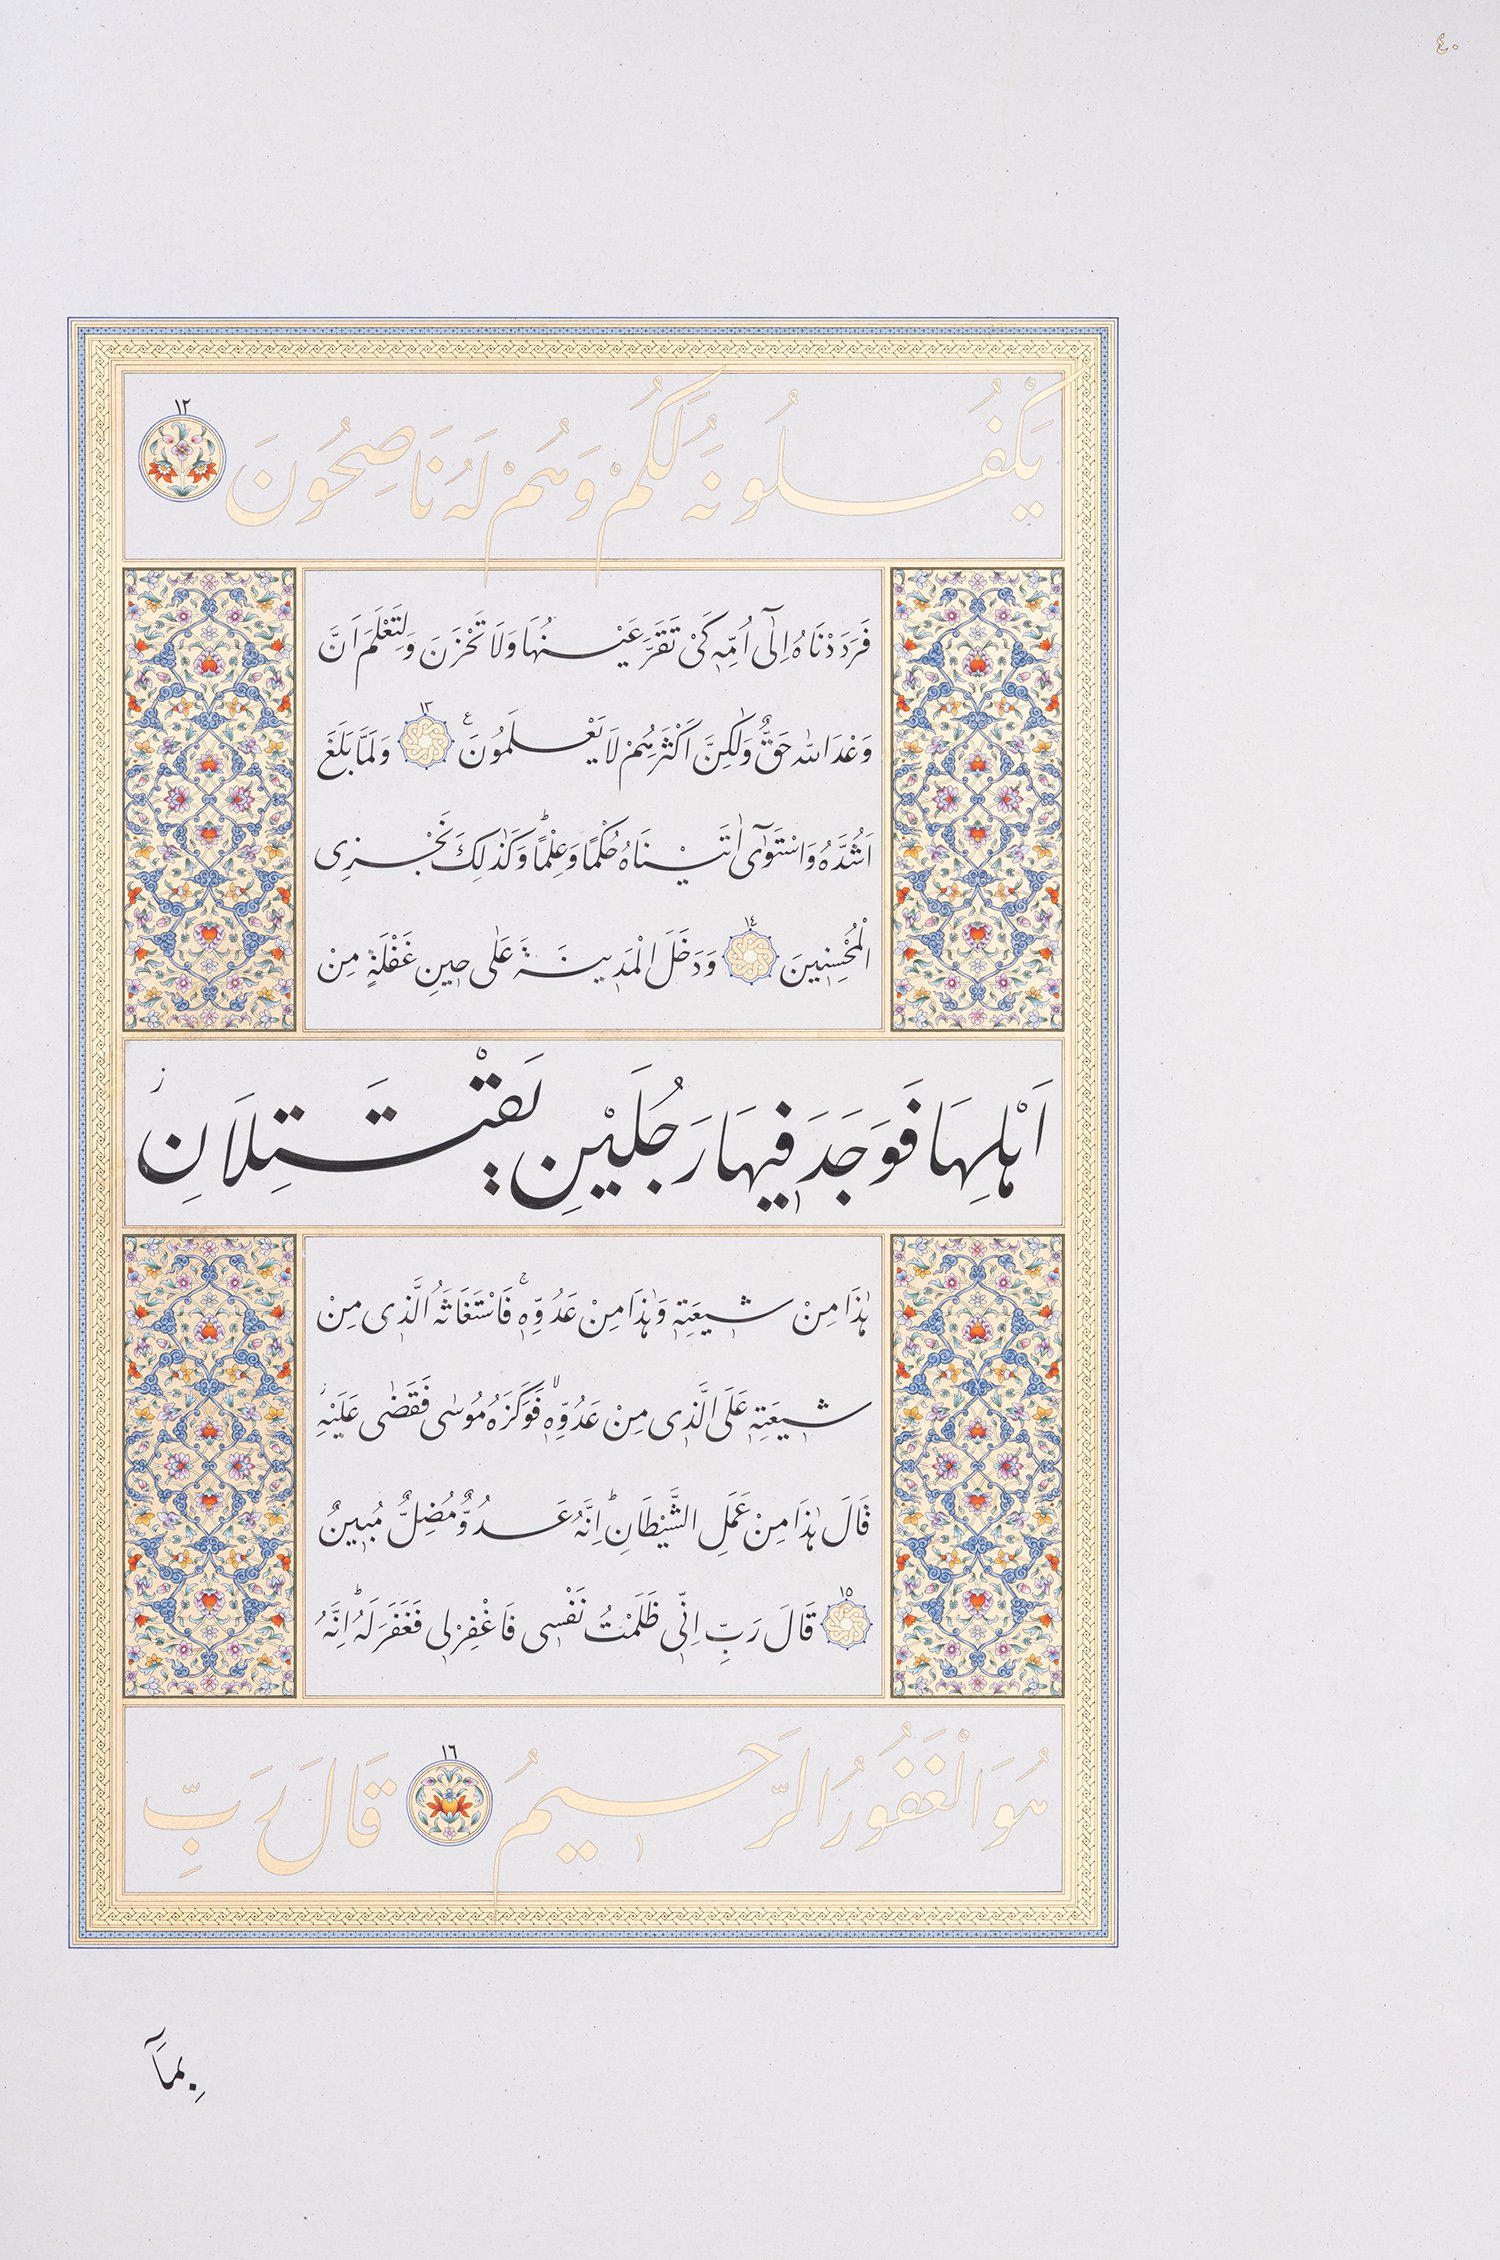 ٤٠
يَكْفُلُونَهُ لَكُمْ وَهُمْ لَهُ نَاصِحُونَ ١٢
فَرَدَدْنَاهُ اِلٰٓى اُمِّه۪ كَىْ تَقَرَّ عَيْنُهَا وَلَا تَحْزَنَ وَلِتَعْلَمَ اَنَّ
وَعْدَ اللّٰهِ حَقٌّ وَلٰكِنَّ اَكْثَرَهُمْ لَا يَعْلَمُونَ ع ١٣ وَلَمَّا بَلَغَ
اَشُدَّهُ وَاسْتَوٰٓى اٰتَيْنَاهُ حُكْمًا وَعِلْمًاۜ وَكَذٰلِكَ نَجْزِى
الْمُحْسِن۪ينَ ١٤ وَدَخَلَ الْمَد۪ينَةَ عَلٰى ح۪ينِ غَفْلَةٍ مِنْ
اَهْلِهَا فَوَجَدَ ف۪يهَا رَجُلَيْنِ يَقْتَتِلَانِۘ
هٰذَا مِنْ ش۪يعَتِه۪ وَهٰذَا مِنْ عَدُوِّه۪ۚ فَاسْتَغَاثَهُ الَّذ۪ى مِنْ
ش۪يعَتِه۪ عَلَى الَّذ۪ى مِنْ عَدُوِّه۪ۙ فَوَكَزَهُ مُوسٰى فَقَضٰى عَلَيْهِۘ
قَالَ هٰذَا مِنْ عَمَلِ الشَّيْطَانِۜ اِنَّهُ عَدُوٌّ مُضِلٌّ مُب۪ينٌ
١٥ قَالَ رَبِّ اِنّ۪ى ظَلَمْتُ نَفْس۪ى فَاغْفِرْل۪ى فَغَفَرَ لَهُۜ اِنَّهُ
هُوَ الْغَفُورُ الرَّح۪يمُ ١٦ قَالَ رَبِّ
بِمَٓا